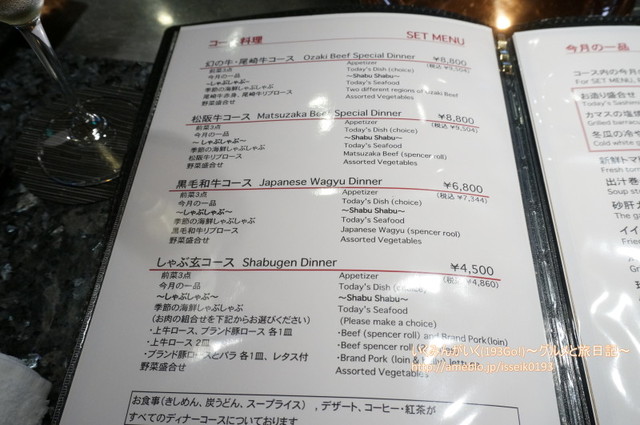 コース料理 SET MENU
幻の牛・尾崎牛コース Ozaki Beef Special Dinner ¥8,800
前菜3点 Appetizer (税込 ¥9,504)
今月の一品 Today's Dish (choice)
～しゃぶしゃぶ～ ～Shabu Shabu～
季節の海鮮しゃぶしゃぶ Today's Seafood
尾崎牛赤身、尾崎牛リブロース Two different regions of Ozaki Beef
野菜盛合せ Assorted Vegetables
松阪牛コース Matsuzaka Beef Special Dinner ¥8,800
前菜3点 Appetizer (税込 ¥9,504)
今月の一品 Today's Dish (choice)
～しゃぶしゃぶ～ ～Shabu Shabu～
季節の海鮮しゃぶしゃぶ Today's Seafood
松阪牛リブロース Matsuzaka Beef (spencer roll)
野菜盛合せ Assorted Vegetables
黒毛和牛コース Japanese Wagyu Dinner ¥6,800
前菜3点 Appetizer (税込 ¥7,344)
今月の一品 Today's Dish (choice)
～しゃぶしゃぶ～ ～Shabu Shabu～
季節の海鮮しゃぶしゃぶ Today's Seafood
黒毛和牛リブロース Japanese Wagyu (spencer rool)
野菜盛合せ Assorted Vegetables
しゃぶ玄コース Shabugen Dinner ¥4,500
前菜3点 Appetizer (税込 ¥4,860)
今月の一品 Today's Dish (choice)
～しゃぶしゃぶ～ ～Shabu Shabu～
季節の海鮮しゃぶしゃぶ Today's Seafood
(お肉の組合せを下記からお選びください) (Please make a choice)
・上牛ロース、ブランド豚ロース 各1皿 ・Beef (spencer roll) and Brand Pork(loin)
・上牛ロース 2皿 ・Beef spencer roll
・ブランド豚ロースとバラ 各1皿、レタス付 ・Brand Pork (loin &
野菜盛合せ Assorted Vegetables
お食事(きしめん、炭うどん、スープライス) , デザート、コーヒー・紅茶が
すべてのディナーコースについております
今月の一品
コース内の今月
For SET MENU,
お造り盛合せ
Today's Sash
カマスの塩焼
Grilled barracu
冬瓜の冷
Cold white g
新鮮トマ
Fresh tom
出汁巻
Soup st
砂肝
イイ
Fri
http://ameblo.jp/isseik0193